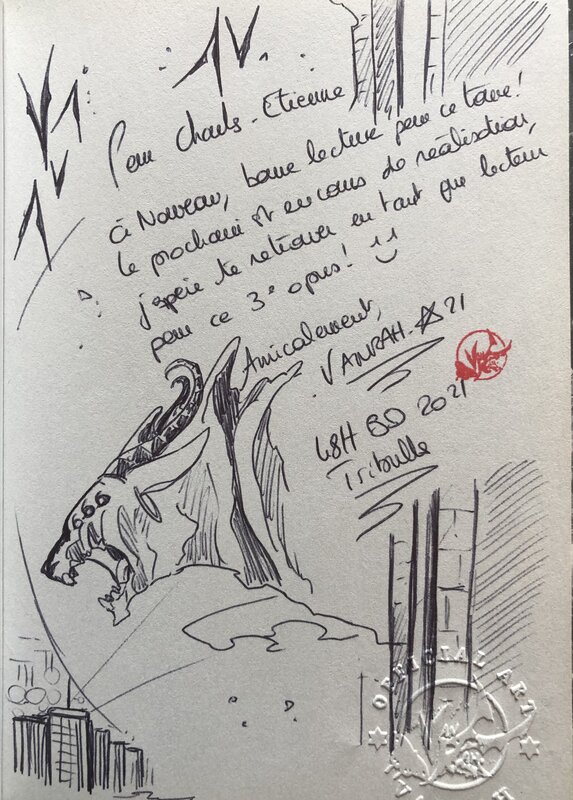 Pour Charles-Etienne
à Nouveau, bonne lecture pour ce tome!
Le prochain est en cours de réalisation,
j'espère te retrouver en tant que lecteur
pour ce 3e opus!
Amicalement,
VANRAH. 21
48H BD 2021
Tribulle
OFFICIAL ART